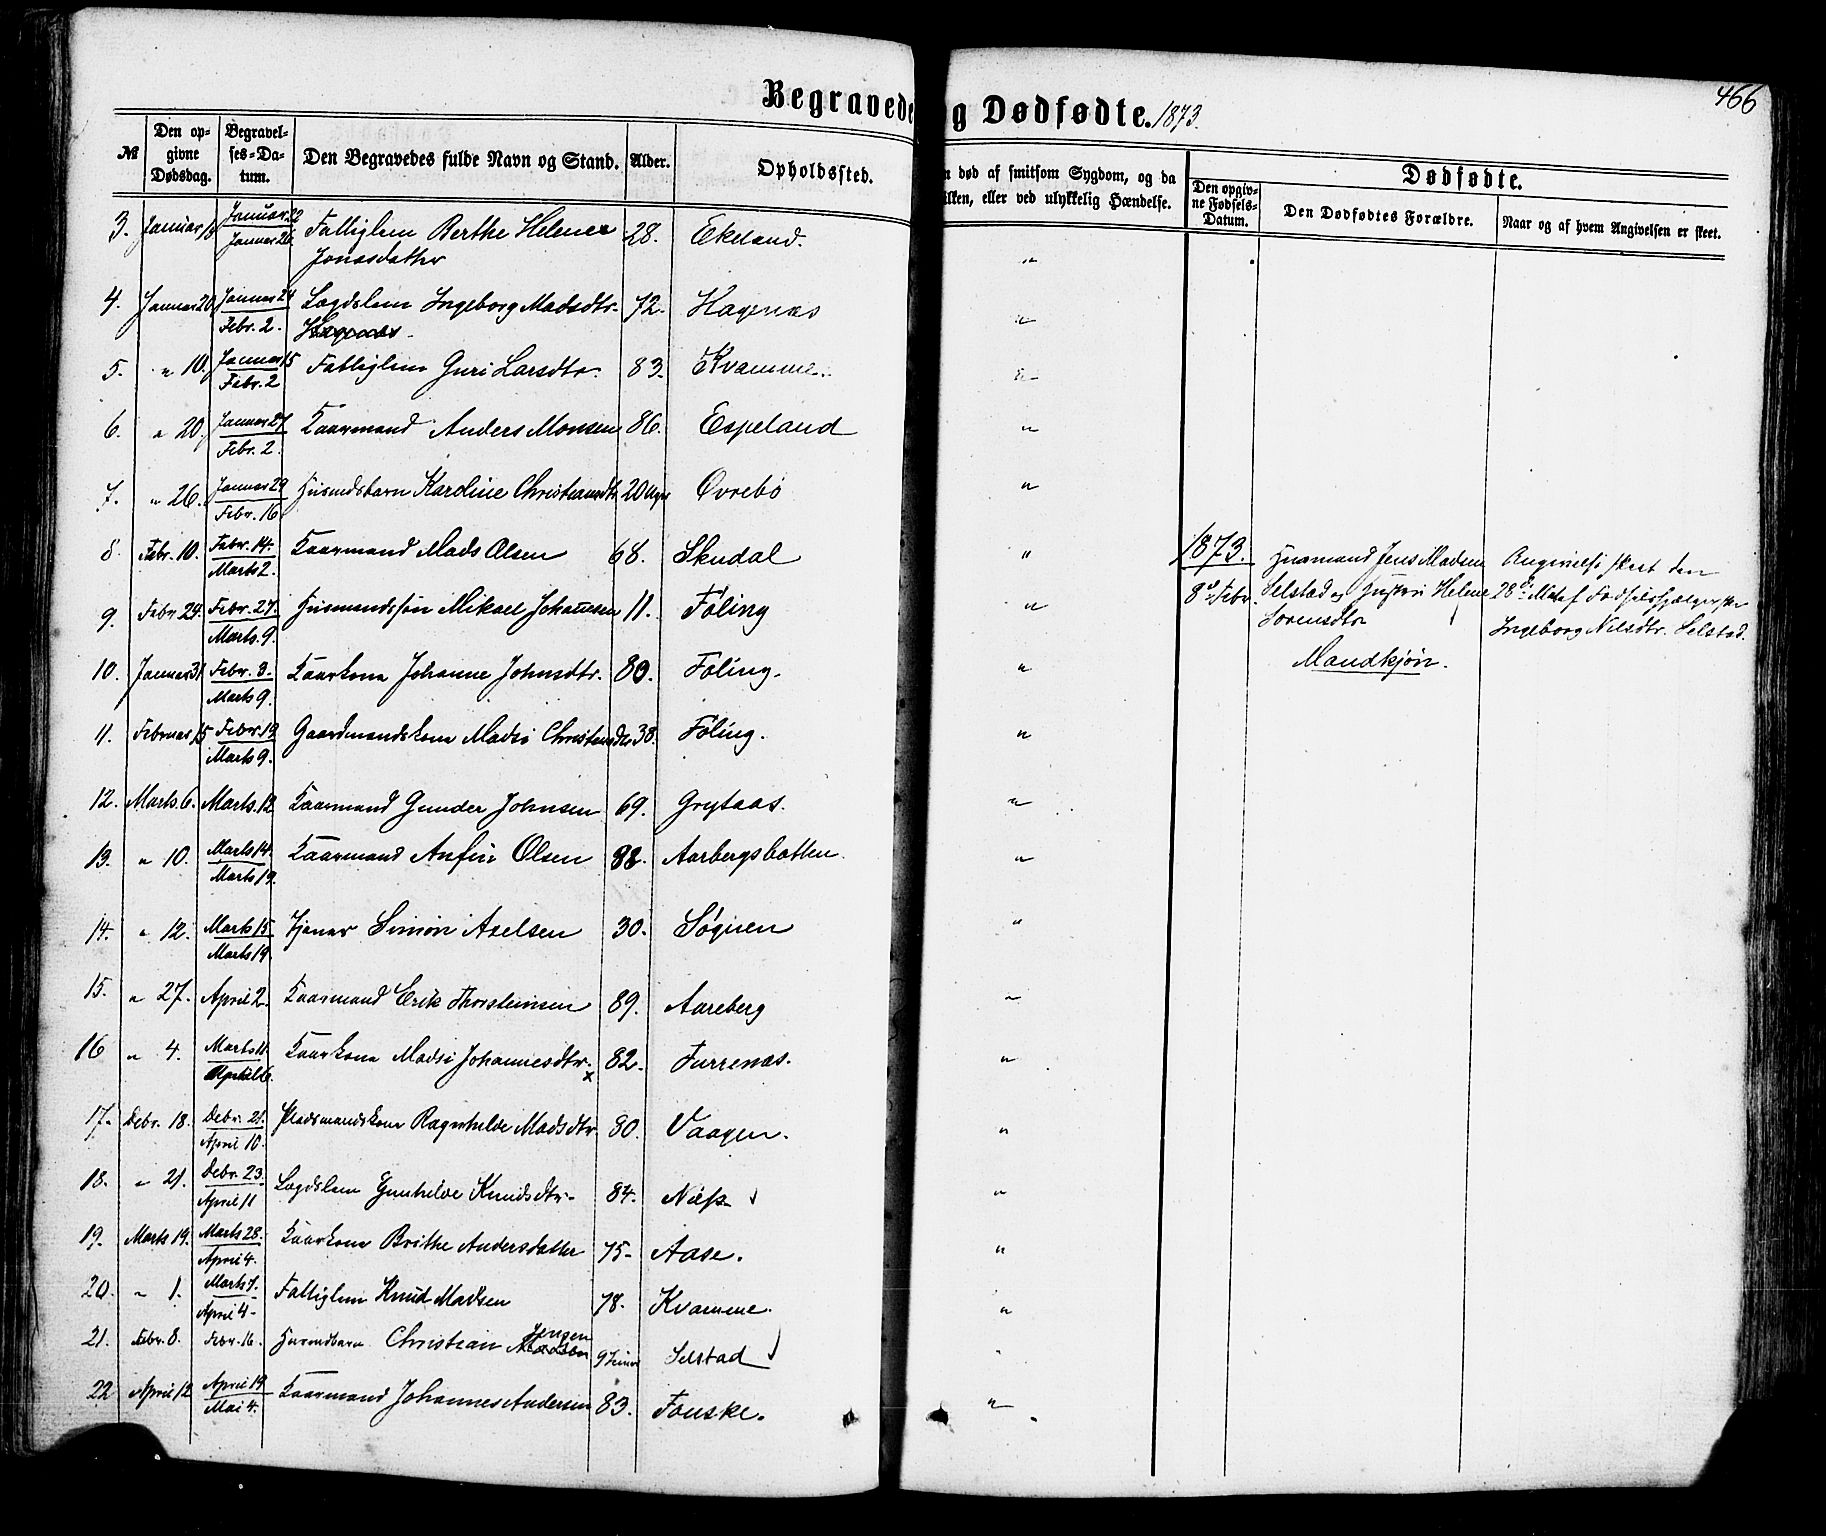 466
Begravede og Dødfødte. 1873.
№
Den opgivne Dødsdag.
Begravelses-Datum.
Den Begravedes fulde Navn og Stand.
Alder.
Opholdssted.
død af smitsom Sygdom, og da
ilken, eller ved ulykkelig Hændelse.
Dødfødte.
Den opgivne Fødsels-Datum.
Den Dødfødtes Forældre.
Naar og af hvem Angivelsen er skeet.
3. Januar 18 Januar 22 Januar 26. Fattiglem Berthe Helene Jonasdatter 28. Ekeland. "
4. Januar 20 Januar 24 Febr. 2. Lægdslem Ingeborg Madsdtr. 72. Hagenæs "
5. " 10. Januar 15 Febr. 2 Fattiglem Guri Larsdtr. 83. Kvamme. "
6. " 20. Januar 27 Febr. 2. Kaarmand Anders Monsen 86. Espeland "
7. " 26. Januar 29 Febr. 16. Husmdsbarn Karoline Christiansdtr 20 Uger Øvrebö "
8. Febr. 10. Febr. 14. Marts 2. Kaarmand Mads Olsen 68. Skudal "
9. Febr 24. Febr. 27. Marts 9. Husmandssön Mikael Johannesen 11. Föling "
10. Januar 31 Febr. 3. Marts 9. Kaarkone Johanne Johnsdtr. 80. Föling. "
11. Februar 15 Febr. 19 Marts 9. Gaardmandskone Madsi Christensdtr 38. Föling. "
12. Marts 6. Marts 12 Kaarmand Gunder Johnsen 69. Grytaas. "
13. " 10. Marts 14. Marts 19. Kaarmand Anfin Olsen 88. Aarbergsbotten. "
14. " 12. Marts 15 Marts 19. Tjener Simon Axelsen 30. Søgnen "
15. " 27. April 2. Kaarmand Erik Thorsteinsen 89. Aareberg "
16 " 4. Marts 11. April 6. Kaarkone Madsi Johannesdtr. x 82. Furrenæs. "
17. Febr. 18. Febr. 21. April 10. Pladsmandskone Ragnhilde Madsdtr. 80. Vaagen. "
18. " 21. Febr. 23. April 11 Lægdslem Gunhilde Knudsdtr. 84. "
19. Marts 19. Marts 28. April 4. Kaarkone Brithe Andersdatter 75. Aase. "
20. " 1. Marts 7. April 4. Fattiglem Knud Madsen 78. Kvamme. "
21. Febr. 8. Febr. 16. Husmdbarn Christian Jensen 9 Timer Selstad
22 April 12 April 19 Mai 4. Kaarmand Johannes Andersen 83. Fonske. "
1873.
8de Febr.
Husmand Jens Madsen
Selstad og Hustru Helene
Sorensdtr
Mandkjön.
Angivelse skeet den
28de af Födselshjælperske
Ingeborg Nilsdtr. Selstad.